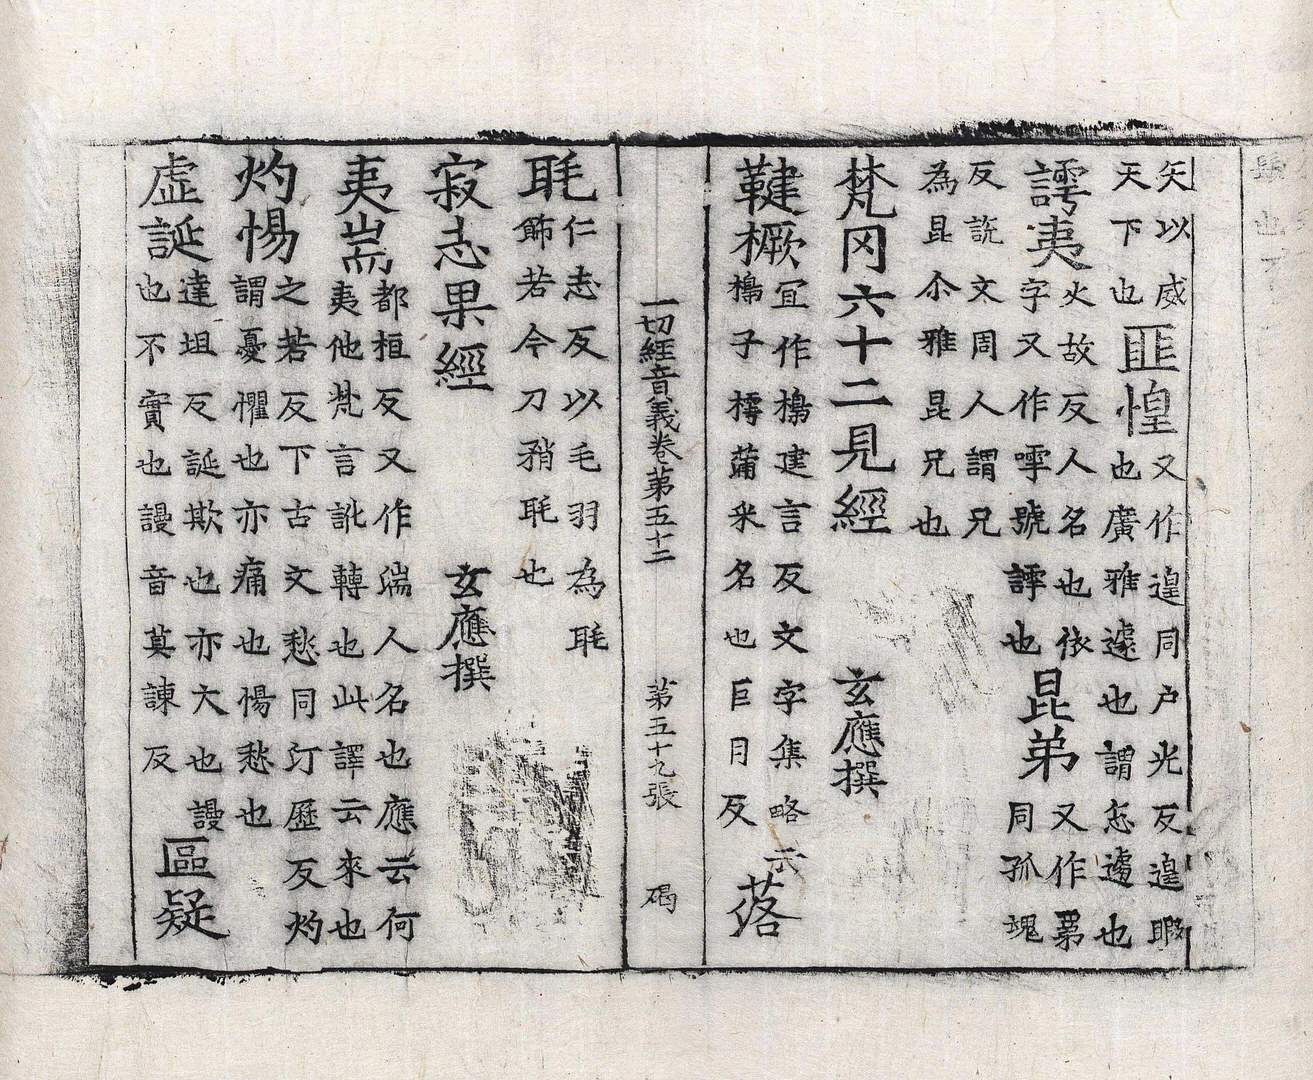 矢以威
天下也
匪惶
又作遑同户光反遑暇
也廣雅遽也謂怱遽也
謣夷
火故反人名也依
字又作嘑號評也
昆弟
又作䍏
同孤魂
反説文周人謂兄
為昆尒雅昆兄也
梵冈六十二見經 玄應撰
鞬橛
冝作樢建言反文字集略云
樢子樗蒲采名也巨月反
落
一切經音義卷第五十二 第五十九張 碣
毦
仁志反以毛羽為毦
飾若今刀矟毦也
寂志果經 玄應撰
夷耑
都桓反又作端人名也應云何
夷他梵言訛轉也此譯云來也
灼惕
之若反下古文愁同汀歷反灼
謂憂懼也亦痛也惕愁也
虛誕
達坦反誕欺也亦大也謾
也不實也謾音莫諫反
區疑